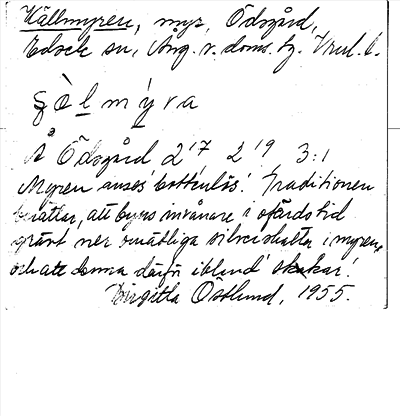 Källmyren, myr, Ödsgård,
Edsele sn, Ång. v. doms. tj. Vnrl. l.
ʂ ò̀ l m ý r a
Å Ödsgård 2'7 2'9 3:1
Myren anses 'bottenlös'. Traditionen
berättar, att byns invånare i ofärdstid
grävt ner omätliga silverskatter i myren,
och att denna därför ibland 'skakar'.
Birgitta Östlund, 1955.